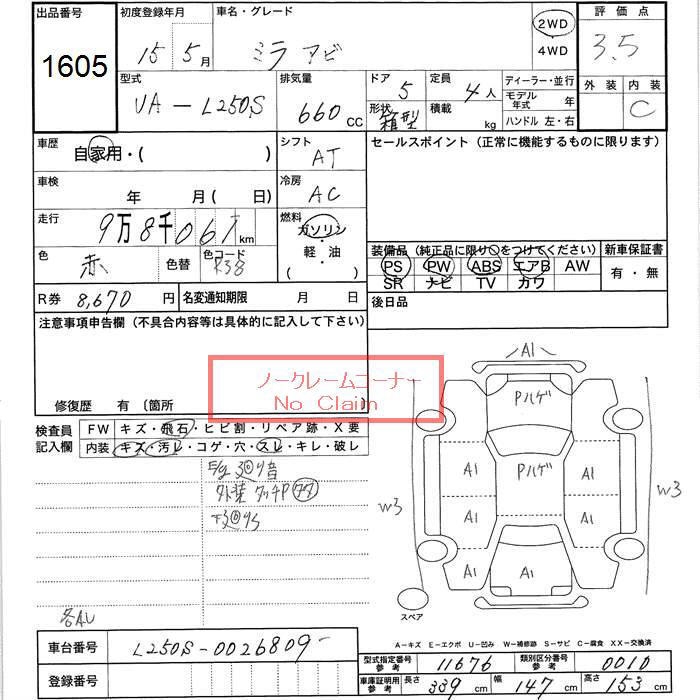 出品番号 初度登録年月 車名・グレード 評価点
1605 15年 5月 ミラ アビ 2WD 3.5
4WD
外装 内装
C
型式 排気量 ドア 定員 ディーラー・並行
UA-L250S 660cc 5 4人 モデル年式 年
形状 箱型 積載 kg ハンドル 左・右
車歴 自家用・( ) シフト AT セールスポイント (正常に機能するものに限ります)
車検 年 月 ( 日) 冷房 AC
走行 9万8千061km 燃料 ガソリン・軽・油・( )
色 赤 色替 色コード R38
装備品 (純正品に限り○をつけてください) 新車保証書
PS PW ABS エアB AW 有・無
SR ナビ TV カワ
R券 8,670円 名変通知期限 月 日 後日品
注意事項申告欄 (不具合内容等は具体的に記入して下さい)
ノークレームコーナー
No Claim
修復歴 有 〔箇所
検査員記入欄 FW キズ・飛石・ヒビ割・リペア跡・X要
内装 キズ・汚レ・コゲ・穴・スレ・キレ・破レ
外装 タッチP
A1
Pハゲ
A1 Pハゲ A1
W3 W3
A1 A1
A1 A1 A1
スペア
A-キズ E-エクボ U-凹み W-補修跡 S-サビ C-腐食 XX-交換済
車台番号 L250S-0026809-
登録番号
型式指定番号 参考 11676 類別区分番号 参考 0010
車庫証明用 参考 長さ 339cm 幅 147cm 高さ 153cm